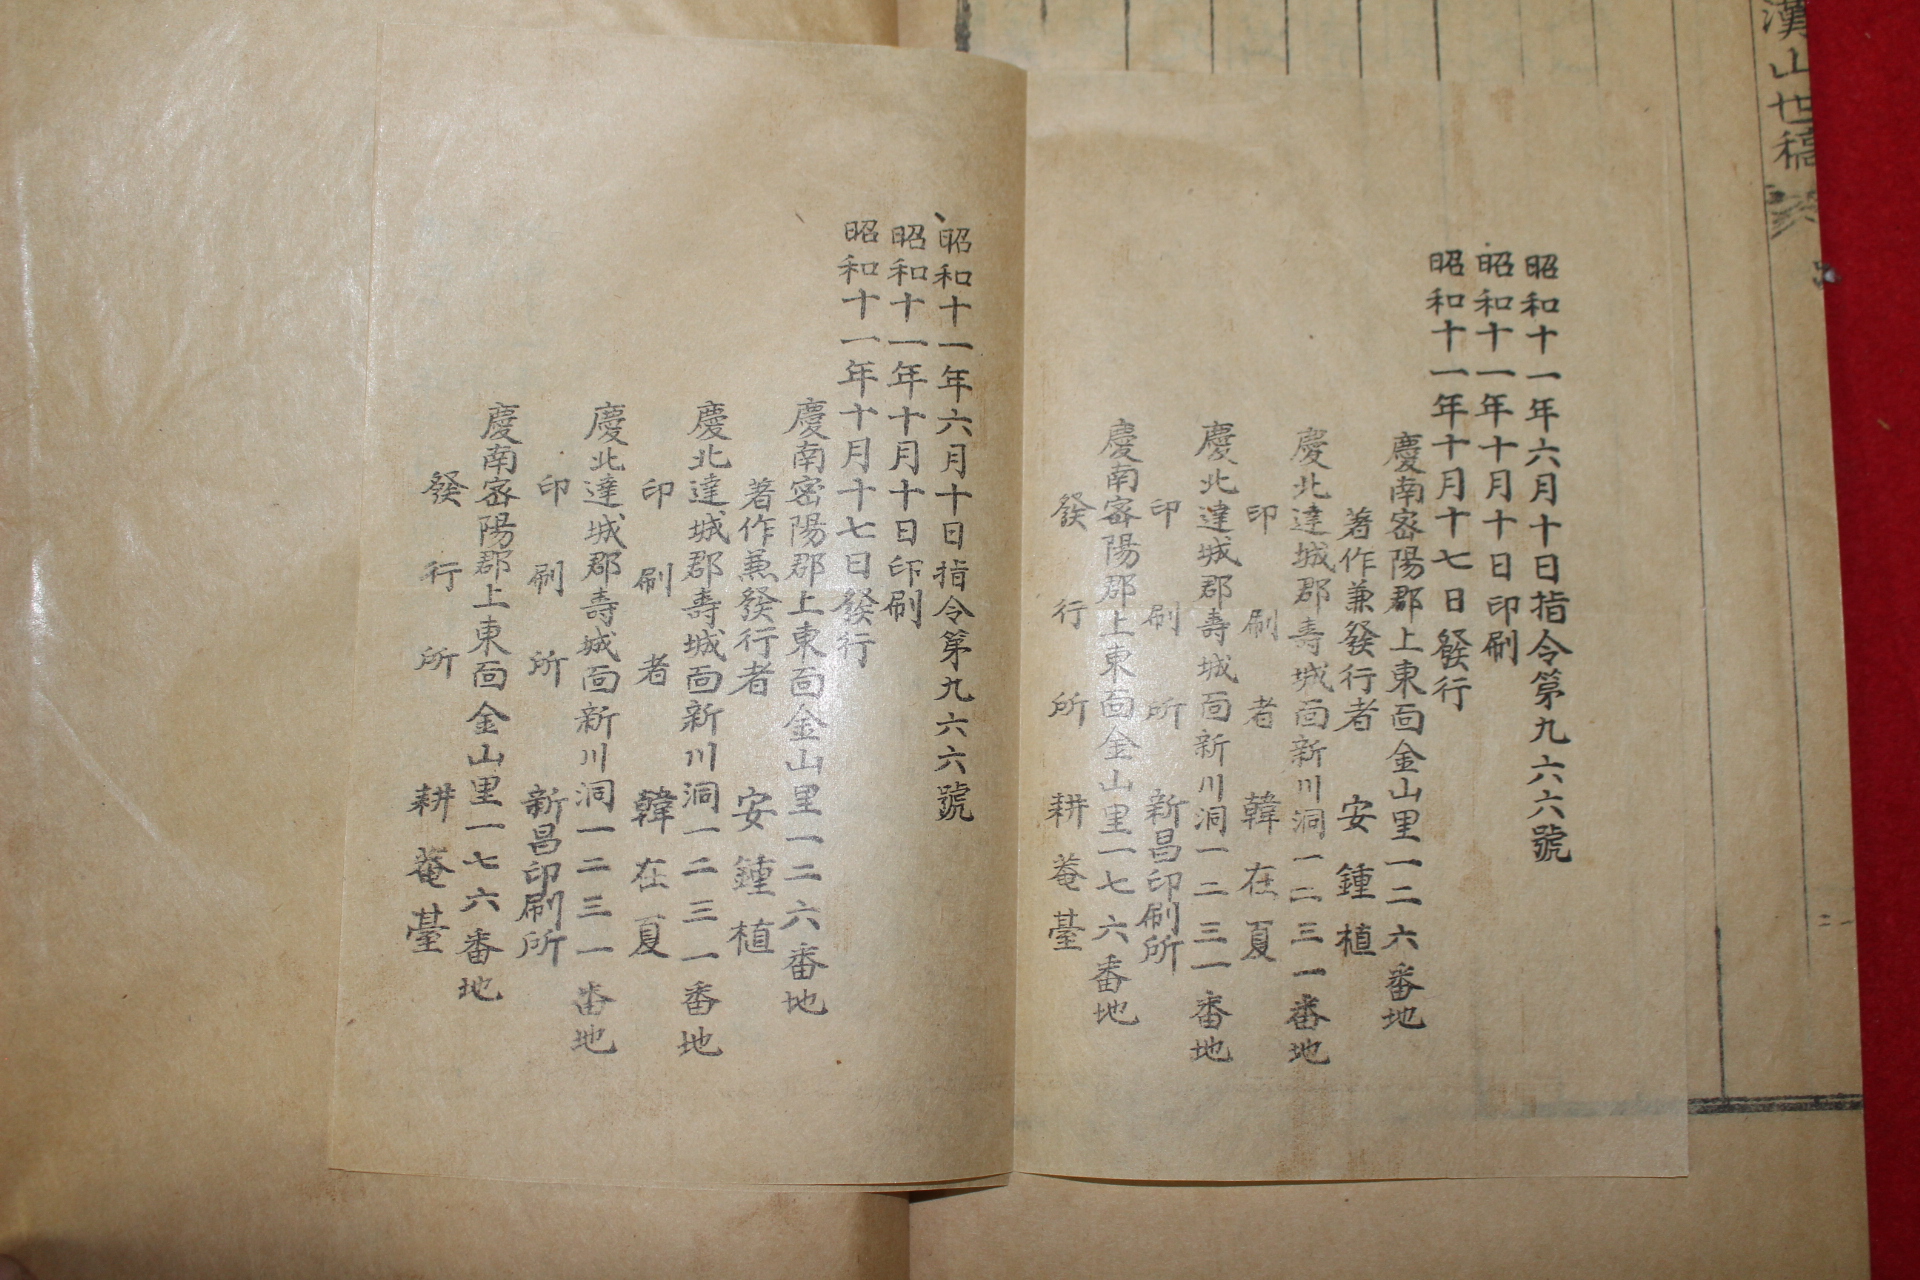 漢山世稿
昭和十一年六月十日指令第九六六號
昭和十一年十月十日印刷
昭和十一年十月十七日發行
慶南密陽郡上東面金山里一二六番地
著作兼發行者 安鍾植
慶北達城郡壽城面新川洞一二三一番地
印刷者 韓在夏
慶北達城郡壽城面新川洞一二三一番地
印刷所 新昌印刷所
慶南密陽郡上東面金山里一七六番地
發行所 耕菴臺
昭和十一年六月十日指令第九六六號
昭和十一年十月十日印刷
昭和十一年十月十七日發行
慶南密陽郡上東面金山里一二六番地
著作兼發行者 安鍾植
慶北達城郡壽城面新川洞一二三一番地
印刷者 韓在夏
慶北達城郡壽城面新川洞一二三一番地
印刷所 新昌印刷所
慶南密陽郡上東面金山里一七六番地
發行所 耕菴臺